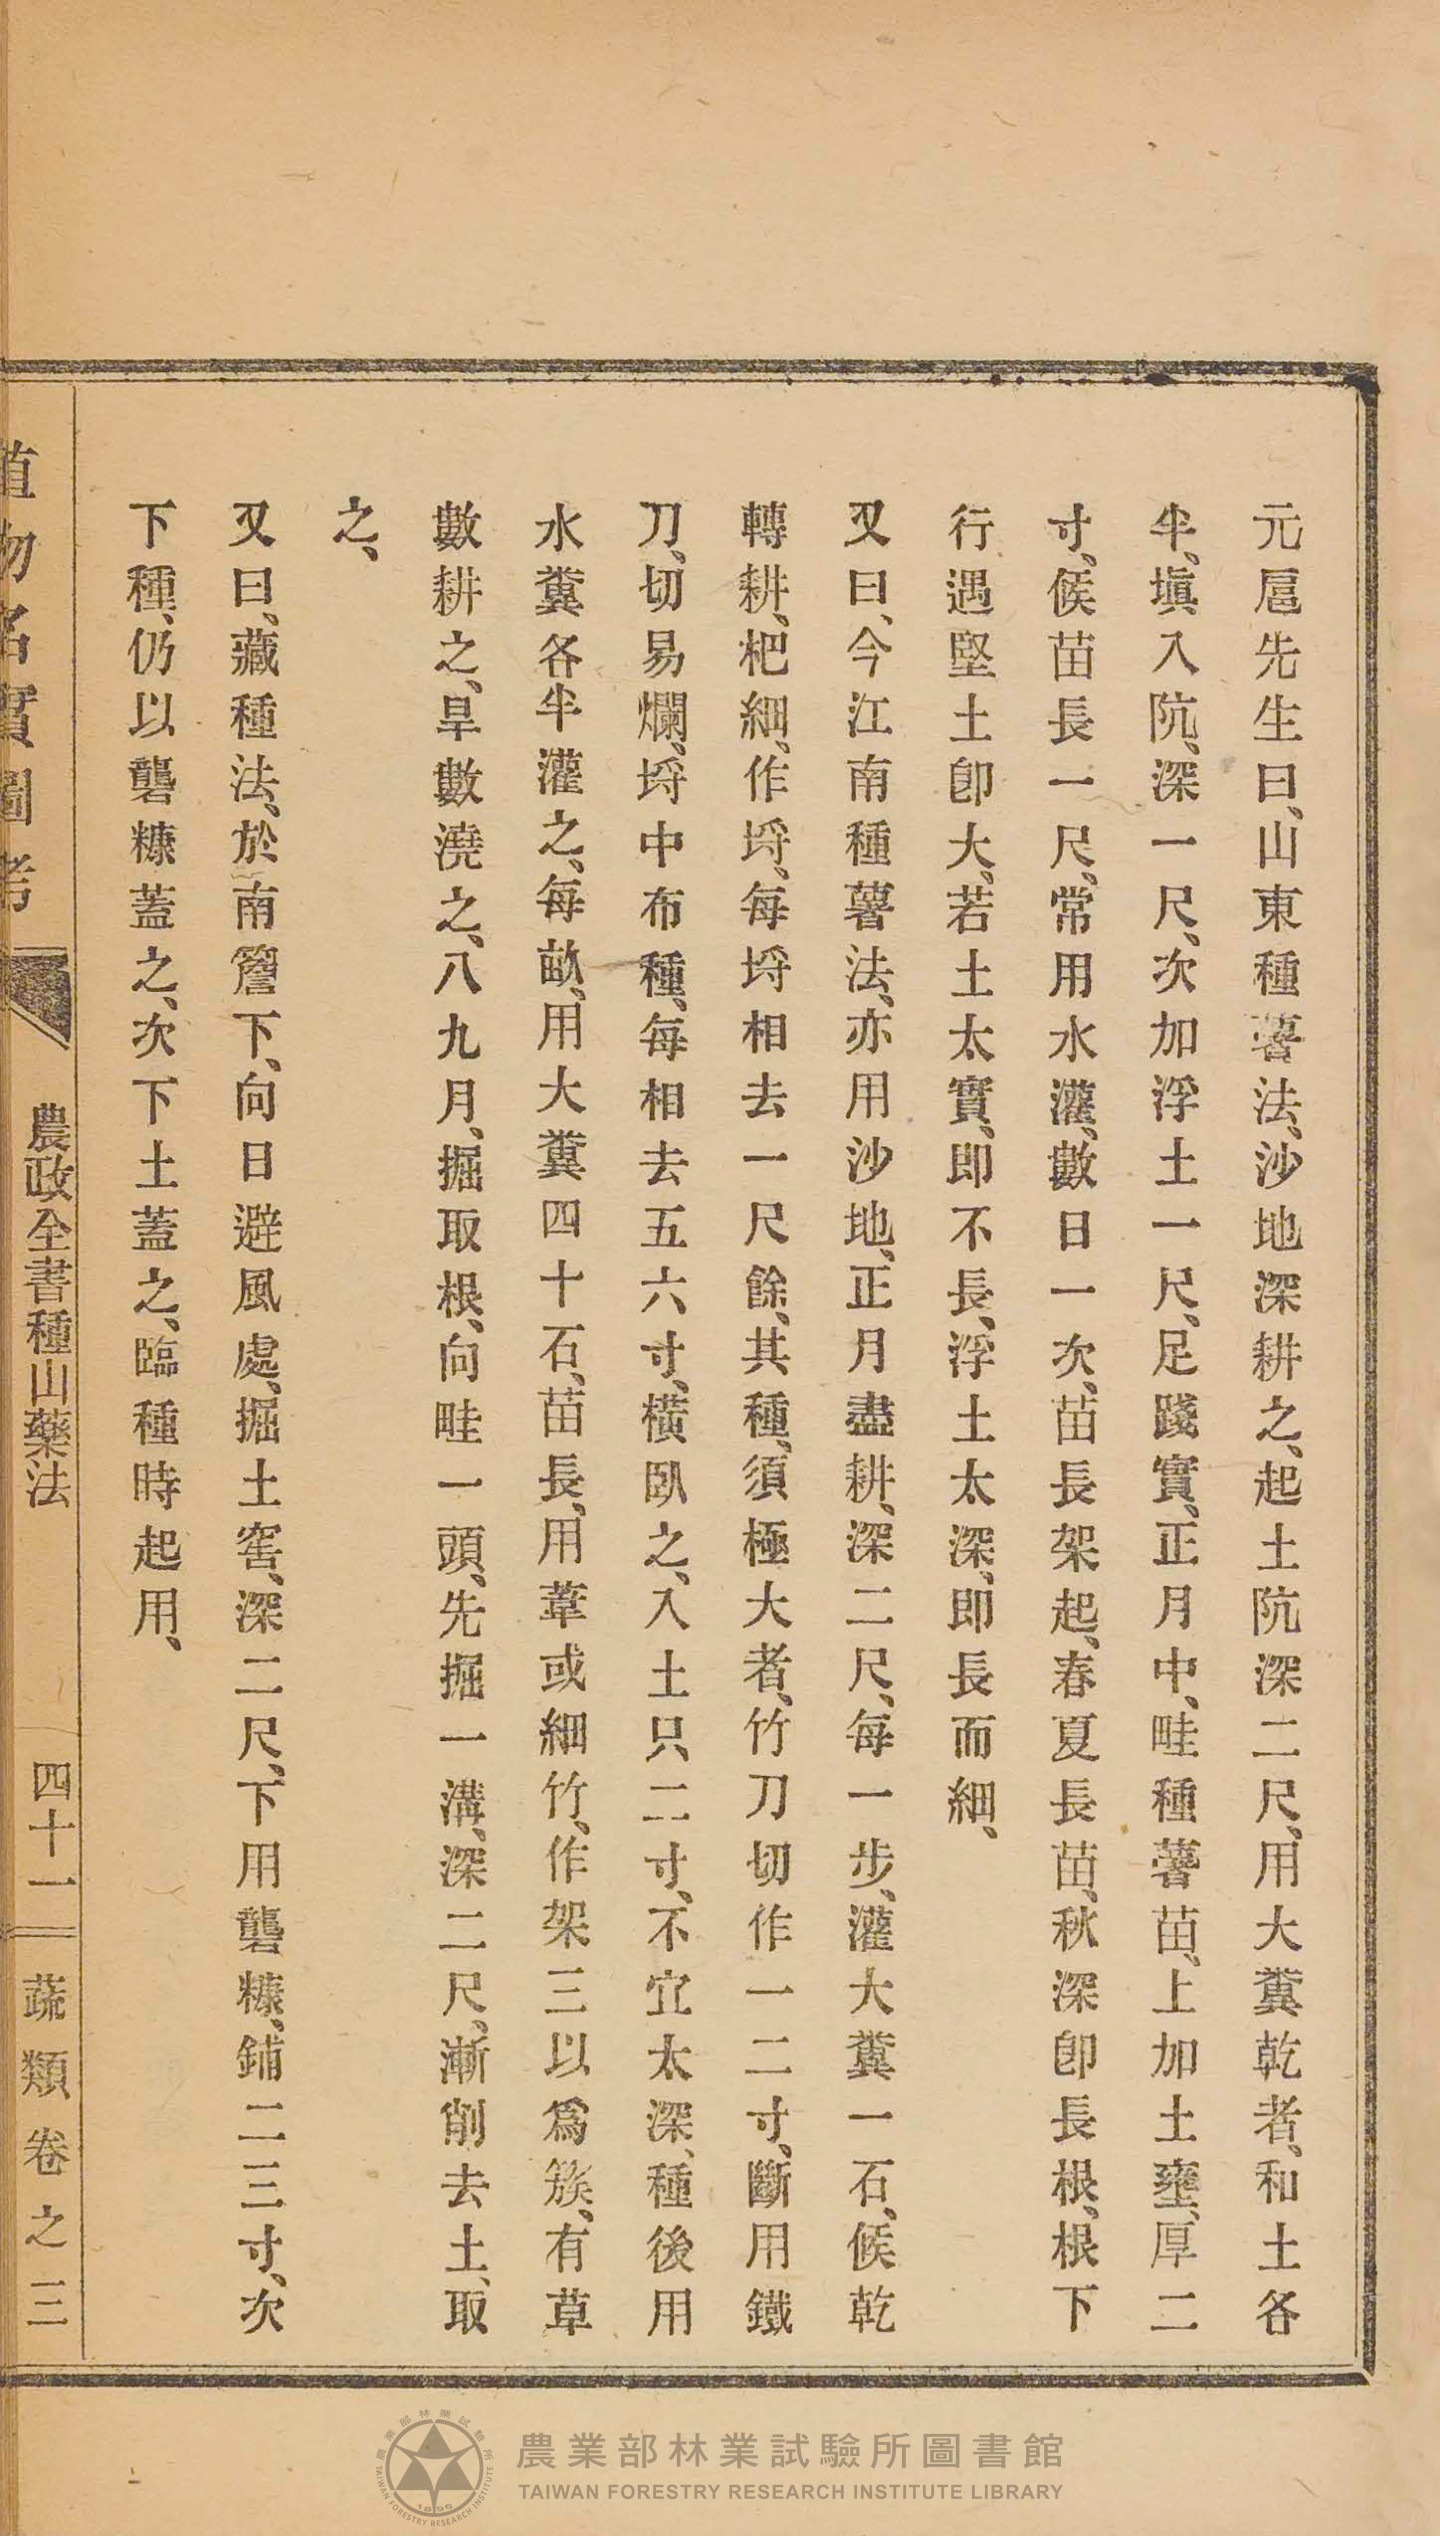 元扈先生曰、山東種薯法、沙地深耕之、起土阬深二尺、用大糞乾者、和土各
半、塡入阬、深一尺、次加浮土一尺、足踐實、正月中、畦種薯苗、上加土壅、厚二
寸、候苗長一尺、常用水灌、數日一次、苗長架起、春夏長苗、秋深卽長根、根下
行遇堅土卽大、若土太實、即不長、浮土太深、即長而細、
又曰、今江南種薯法、亦用沙地、正月盡耕、深二尺、每一步、灌大糞一石、候乾
轉耕、杷細、作埒、每埒相去一尺餘、其種、須極大者、竹刀切作一二寸、斷用鐵
刀、切易爛、埒中布種、每相去五六寸、橫臥之、入土只二寸、不宜太深、種後用
水糞各半灌之、每畝、用大糞四十石、苗長、用葦或細竹、作架三以爲簇、有草
數耕之、旱數澆之、八九月、掘取根、向畦一頭、先掘一溝、深二尺、漸削去土、取
之、
又曰、藏種法、於南簷下、向日避風處、掘土窖、深二尺、下用礱糠、鋪二三寸、次
下種、仍以礱糠蓋之、次下土蓋之、臨種時起用、
植物名實圖考 農政全書種山藥法 四十一 蔬類卷之三
農業部林業試驗所圖書館
TAIWAN FORESTRY RESEARCH INSTITUTE LIBRARY
農業部林業試驗所
TAIWAN FORESTRY RESEARCH INSTITUTE
1895